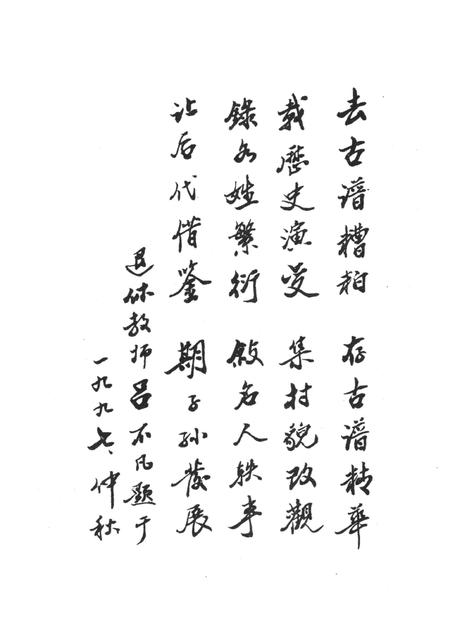 去古谱糟粕 存古谱精华
载歷史演变 集村貌改觀
錄各姓繁衍 敍名人轶事
让后代借鉴 期子孙发展
退休教师吕不凡题于
一九九七、仲秋